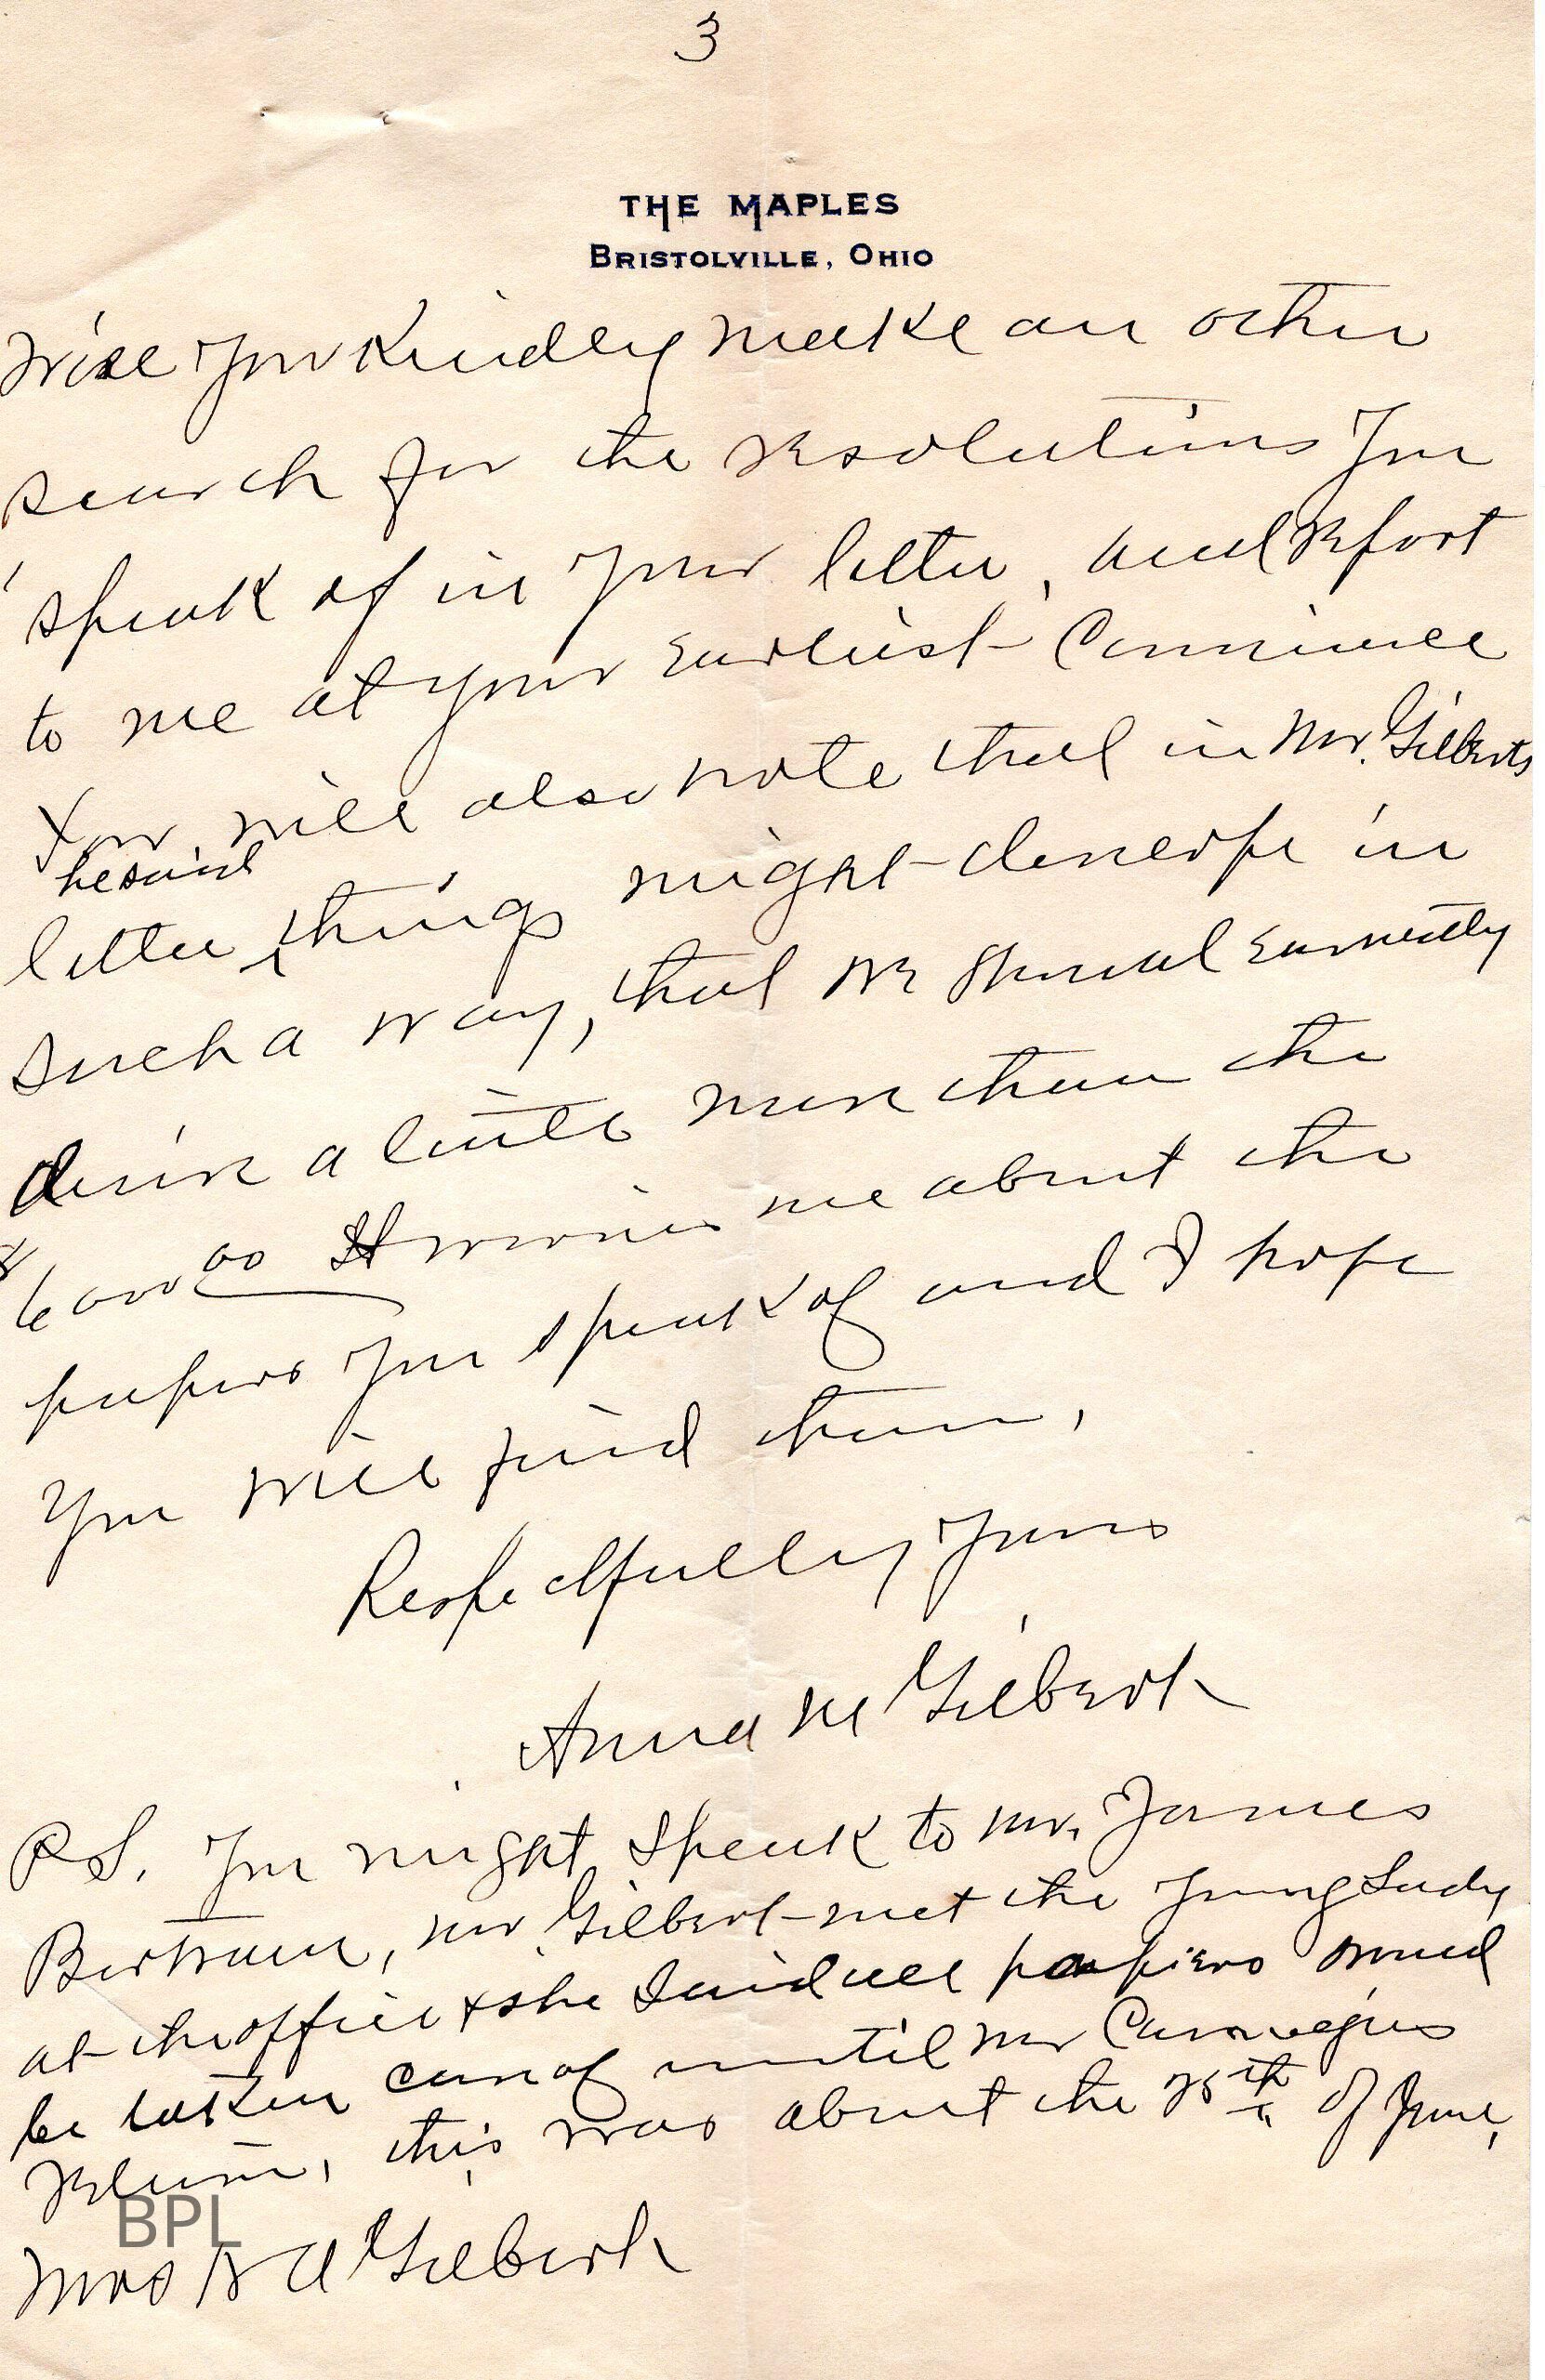 3
THE MAPLES
BRISTOLVILLE, OHIO
Will you Kindly make an other
search for the resolutions you
speak of in your letter, and report
to me at your Earliest Convience
You will also note that in Mr. Gilberts
he said
letter things might develope in
such a way, that we should Earnestly
desire a little more than the
$6000 00 It worries me about the
papers you speak of and I hope
you will find them,
Respectfully yours
Anna M Gilbert
P.S. You might speak to Mr. James
Bertram, Mr Gilbert met the young Lady
at the office & she said all papers would
be taken care of until Mr Carnegies
return, this was about the 25th of June,
BPL
Mrs N A Gilbert